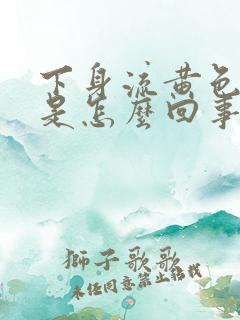 下身流黄色
是怎麽回事
獅子歌歌
未经同意禁止搬栽